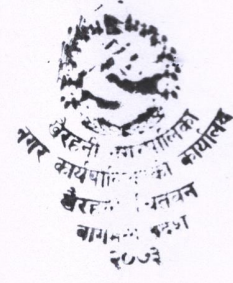 खैरहनी नगरपालिका
नगर कार्यपालिकाको कार्यालय
खैरहनी चितवन
बागमती प्रदेश
२०७३